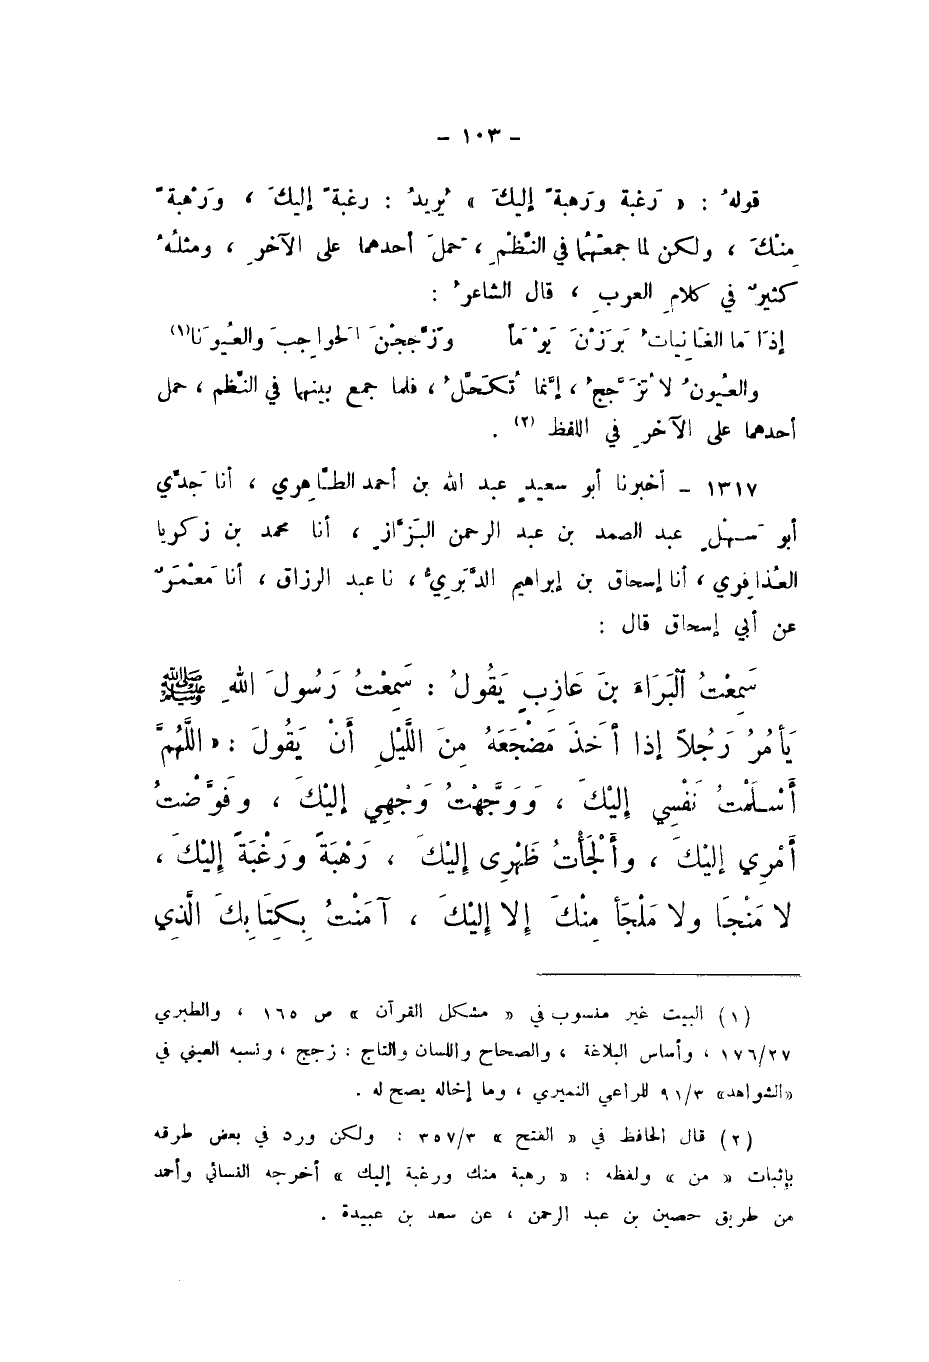 - ١٠٣ -
قولهُ : « رَغبة ورَهبةً إليكَ » يُريدُ : رغبةً إليكَ ، ورَهْبةً
مِنْكَ ، ولكن لما جمعَهُما في النَّظْمِ ، حملَ أحدهما على الآخرِ ، ومثلُهُ
كثيرٌ في كلامِ العربِ ، قال الشاعرُ :
إذَا مَا الغَانِياتُ بَرَزْنَ يَوْمَاً وَزَجَّجْنَ الحَواجِبَ والعُيُونَا(١)
والعُيونُ لا تُزَجَّجُ ، إنَّما تُكَحَّلُ ، فلما جمع بينهما في النَّظم ، حمل
أحدهما على الآخرِ في اللفظ (٢) .
١٣١٧ - أخبرنا أبو سعيدٍ عبد الله بن أحمد الطَّاهِري ، أنا جَدِّي
أبو سَهْلٍ عبد الصمد بن عبد الرحمن البَزَّازِ ، أنا محمد بن زكريا
العُذافِري ، أنا إسحاق بن إبراهيم الدَّبَريُّ ، نا عبد الرزاق ، أنا مَعْمَرٌ
عن أبي إسحاق قال :
سَمِعْتُ ٱلْبَرَاءَ بنَ عَازِبٍ يَقُولُ : سَمِعْتُ رَسُولَ اللهِ ﷺ
يَأمُرُ رَجُلاً إذا أَخَذَ مَضْجَعَهُ مِنَ اللَّيْلِ أَنْ يَقُولَ : « اللَّهُمَّ
أَسْلَمْتُ نَفْسِي إِلَيْكَ ، وَوَجَّهْتُ وَجْهِي إِلَيْكَ ، وَفَوَّضْتُ
أَمْرِي إِلَيْكَ ، وأَلْجَأْتُ ظَهْرِى إِلَيْكَ ، رَهْبَةً ورَغْبَةً إِلَيْكَ ،
لا مَنْجَا ولا مَلْجَأَ مِنْكَ إِلا إِلَيْكَ ، آمَنْتُ بِكِتَابِكَ الَّذِي
(١) البيت غير منسوب في « مشكل القرآن » ص ١٦٥ ، والطبري
١٧٦/٢٧ ، وأساس البلاغة ، والصحاح واللسان والتاج : زجج ، ونسبه العيني في
«الشواهد» ٩١/٣ للراعي النميري ، وما إخاله يصح له .
(٢) قال الحافظ في « الفتح » ٣٥٧/٣ : ولكن ورد في بعض طرقه
بإثبات « من » ولفظه : « رهبة منك ورغبة إليك » أخرجه النسائي وأحمد
من طريق حصين بن عبد الرحمن ، عن سعد بن عبيدة .